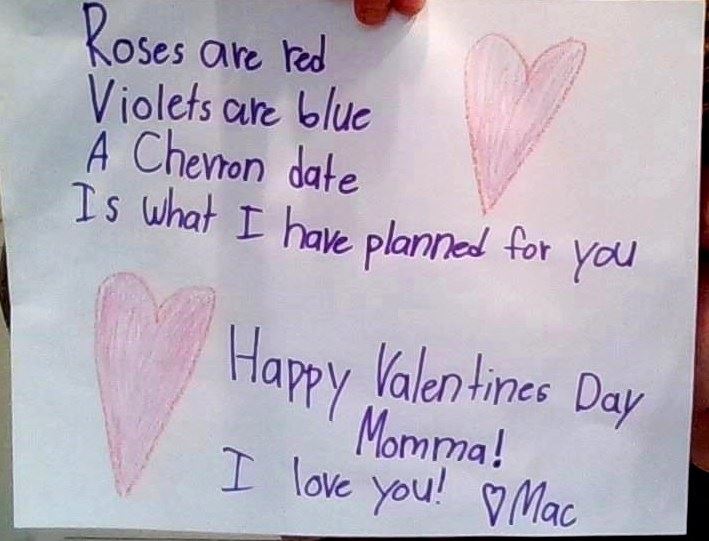 Roses are red
Violets are blue
A Chevron date
Is what I have planned for you
Happy Valentines Day
Momma!
I love you! ♡Mac